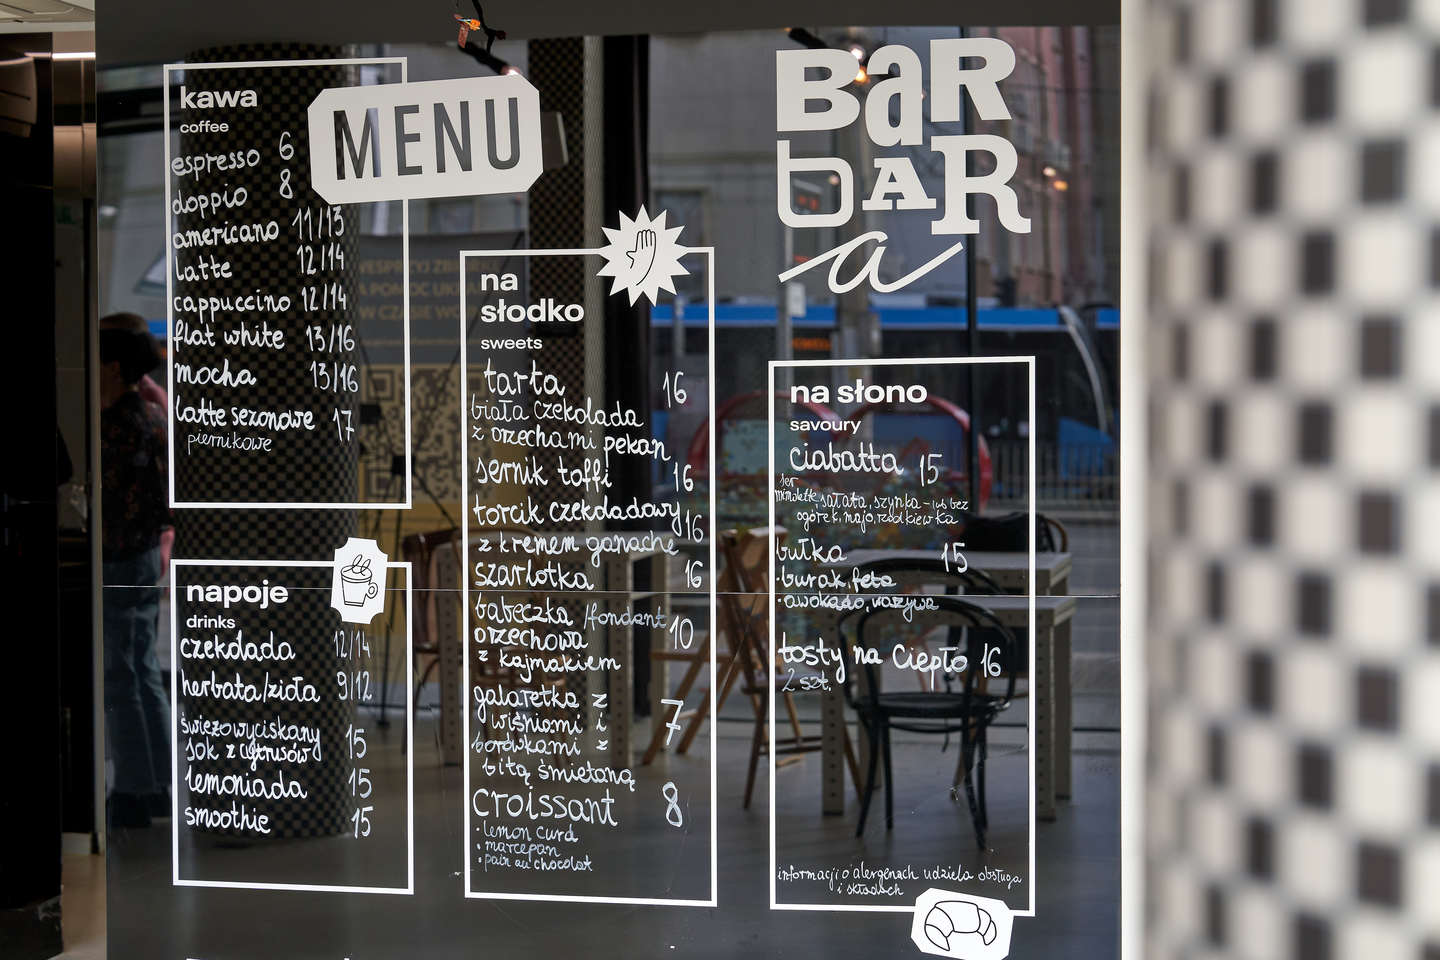 kawa
coffee
espresso 6
doppio 8
americano 11/13
latte 12/14
cappuccino 12/14
flat white 13/16
mocha 13/16
latte sezonowe 17
piernikowe
MENU
napoje
drinks
czekolada 12/14
herbata/zioła 9/12
świeżo wyciskany
sok z cytrusów 15
lemoniada 15
smoothie 15
na
słodko
sweets
tarta 16
biała czekolada
z orzechami pekan
sernik toffi 16
torcik czekoladowy 16
z kremem ganache
szarlotka 16
babeczka /fondant 10
orzechowa
z kajmakiem
galaretka z 7
wiśniami i
borówkami z
bitą śmietaną
croissant 8
• lemon curd
• marcepan
• pain au chocolat
BaR
bAR
a
na słono
savoury
ciabatta 15
ser
mimolette, sałata, szynka - lub bez
ogórek, majo, rzodkiewka
bułka 15
• burak, feta
• awokado, warzywa
tosty na ciepło 16
2 szt.
informacji o alergenach udziela obsługa
i składach